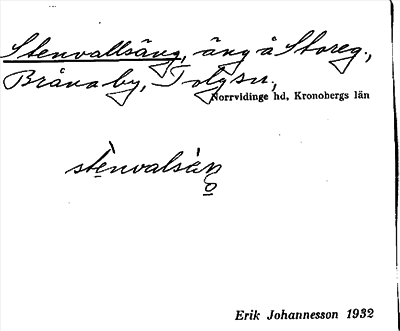 Stenvallsäng, äng å Storeg.,
Brånaby, Tolg sn,
Norrvidinge hd, Kronobergs län
stènvalsäŋ
Erik Johannesson 1932